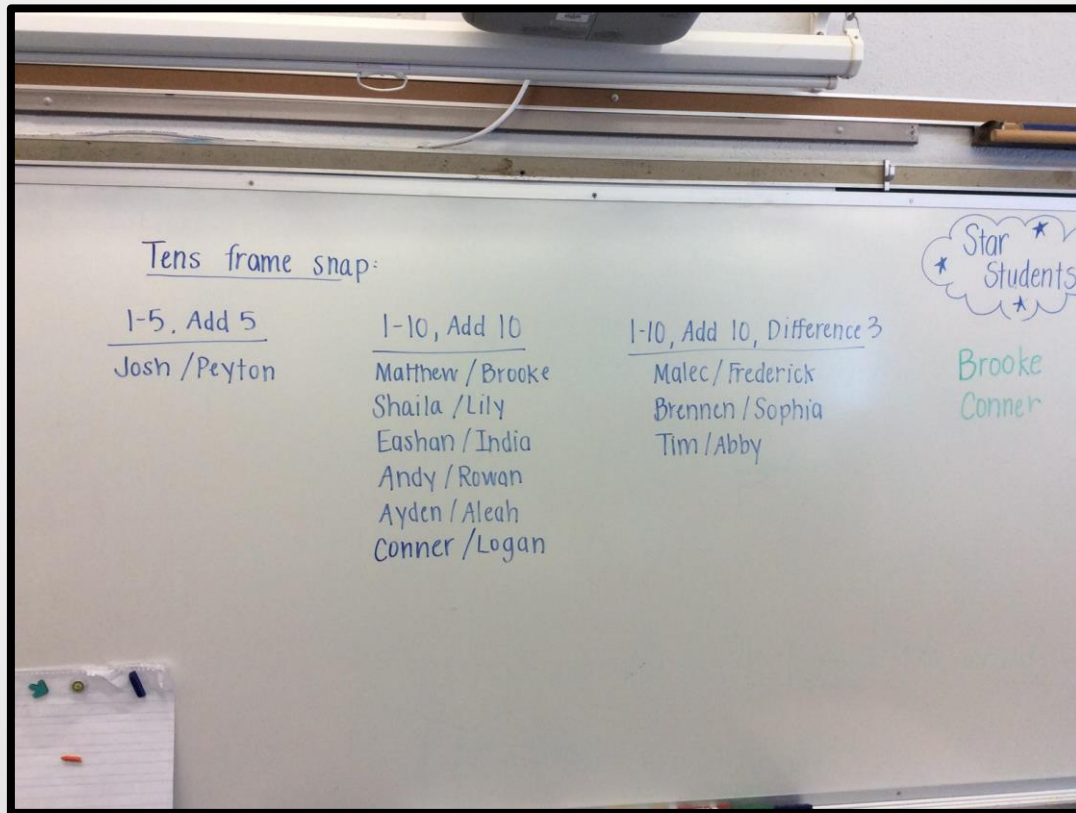 Tens frame snap:
1-5, Add 5
Josh / Peyton
1-10, Add 10
Matthew / Brooke
Shaila / Lily
Eashan / India
Andy / Rowan
Ayden / Aleah
Conner / Logan
1-10, Add 10, Difference 3
Malec / Frederick
Brennen / Sophia
Tim / Abby
Star
Students
Brooke
Conner